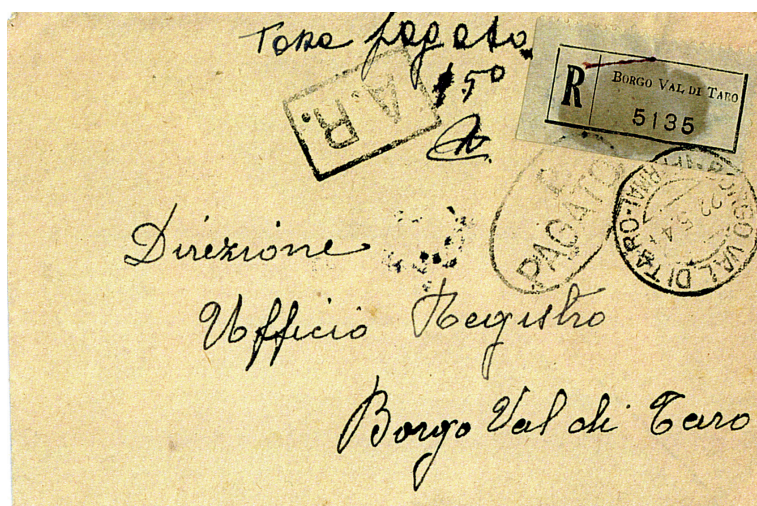 Tassa pagata
150
A.R.
R
BORGO VAL DI TARO
5135
PAGATO
BORGO VAL DI TARO
Direzione
Ufficio Registro
Borgo Val di Taro